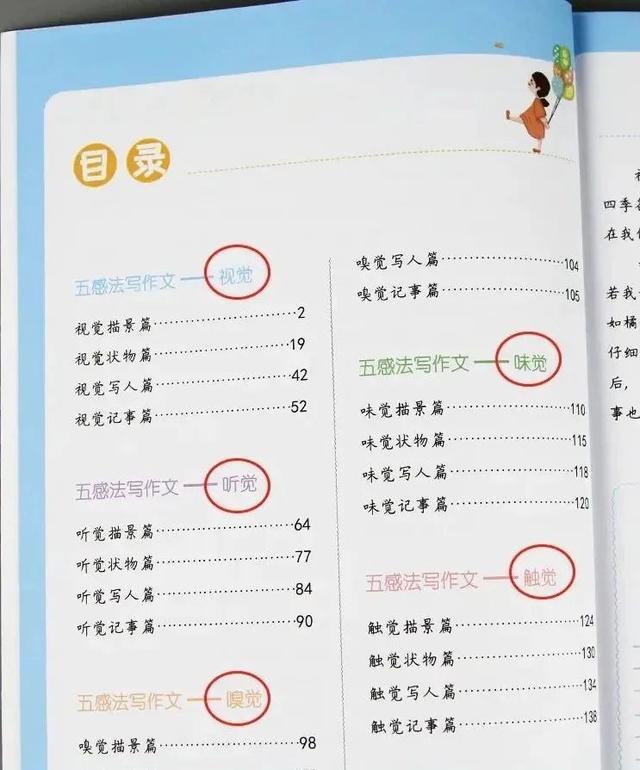 目录
五感法写作文——视觉
视觉描景篇………………2
视觉状物篇………………19
视觉写人篇………………42
视觉记事篇………………52
五感法写作文——听觉
听觉描景篇………………64
听觉状物篇………………77
听觉写人篇………………84
听觉记事篇………………90
五感法写作文——嗅觉
嗅觉描景篇………………98
嗅觉写人篇………………104
嗅觉记事篇………………105
五感法写作文——味觉
味觉描景篇………………110
味觉状物篇………………115
味觉写人篇………………118
味觉记事篇………………120
五感法写作文——触觉
触觉描景篇………………124
触觉状物篇………………130
触觉写人篇………………134
触觉记事篇………………138
四季
在我
若我
如橘
仔细
后，
事也